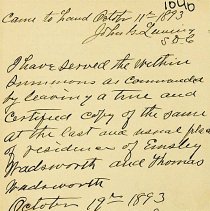 1040
Came to hand October 11th 1893
John G.
S.D.C
I have served the within
Summons as Commanded
by leaving a true and
Certified copy of the same
at the last and usual place
of residence of Emsley
Wadsworth and Thomas
Wadsworth
October 19th 1893